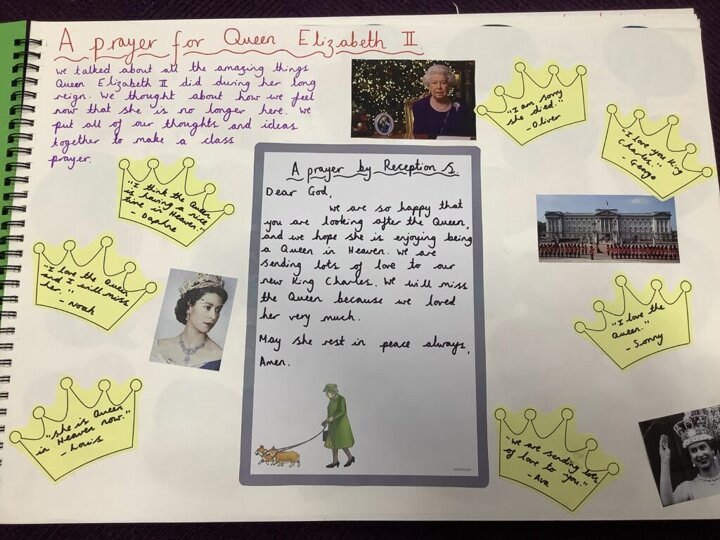 A prayer for Queen Elizabeth II
we talked about all the amazing things
Queen Elizabeth II did during her long
reign. We thought about how we feel
now that she is no longer here. We
put all of our thoughts and ideas
together to make a class
prayer.
"I am sorry
she died."
- Oliver
"I love you King
Charles."
- George
"I think the Queen
is having a nice
time in Heaven."
- Daphne
"I love the Queen
and I will miss
her."
- Noah
"She is Queen
in Heaven now."
- Louis
A prayer by Reception S.
Dear God,
We are so happy that
you are looking after the Queen,
and we hope she is enjoying being
a Queen in Heaven. We are
sending lots of love to our
new King Charles. We will miss
the Queen because we loved
her very much.
May she rest in peace always,
Amen.
"I love the
Queen."
- Sonny
"We are sending lots
of love to you."
- Ava